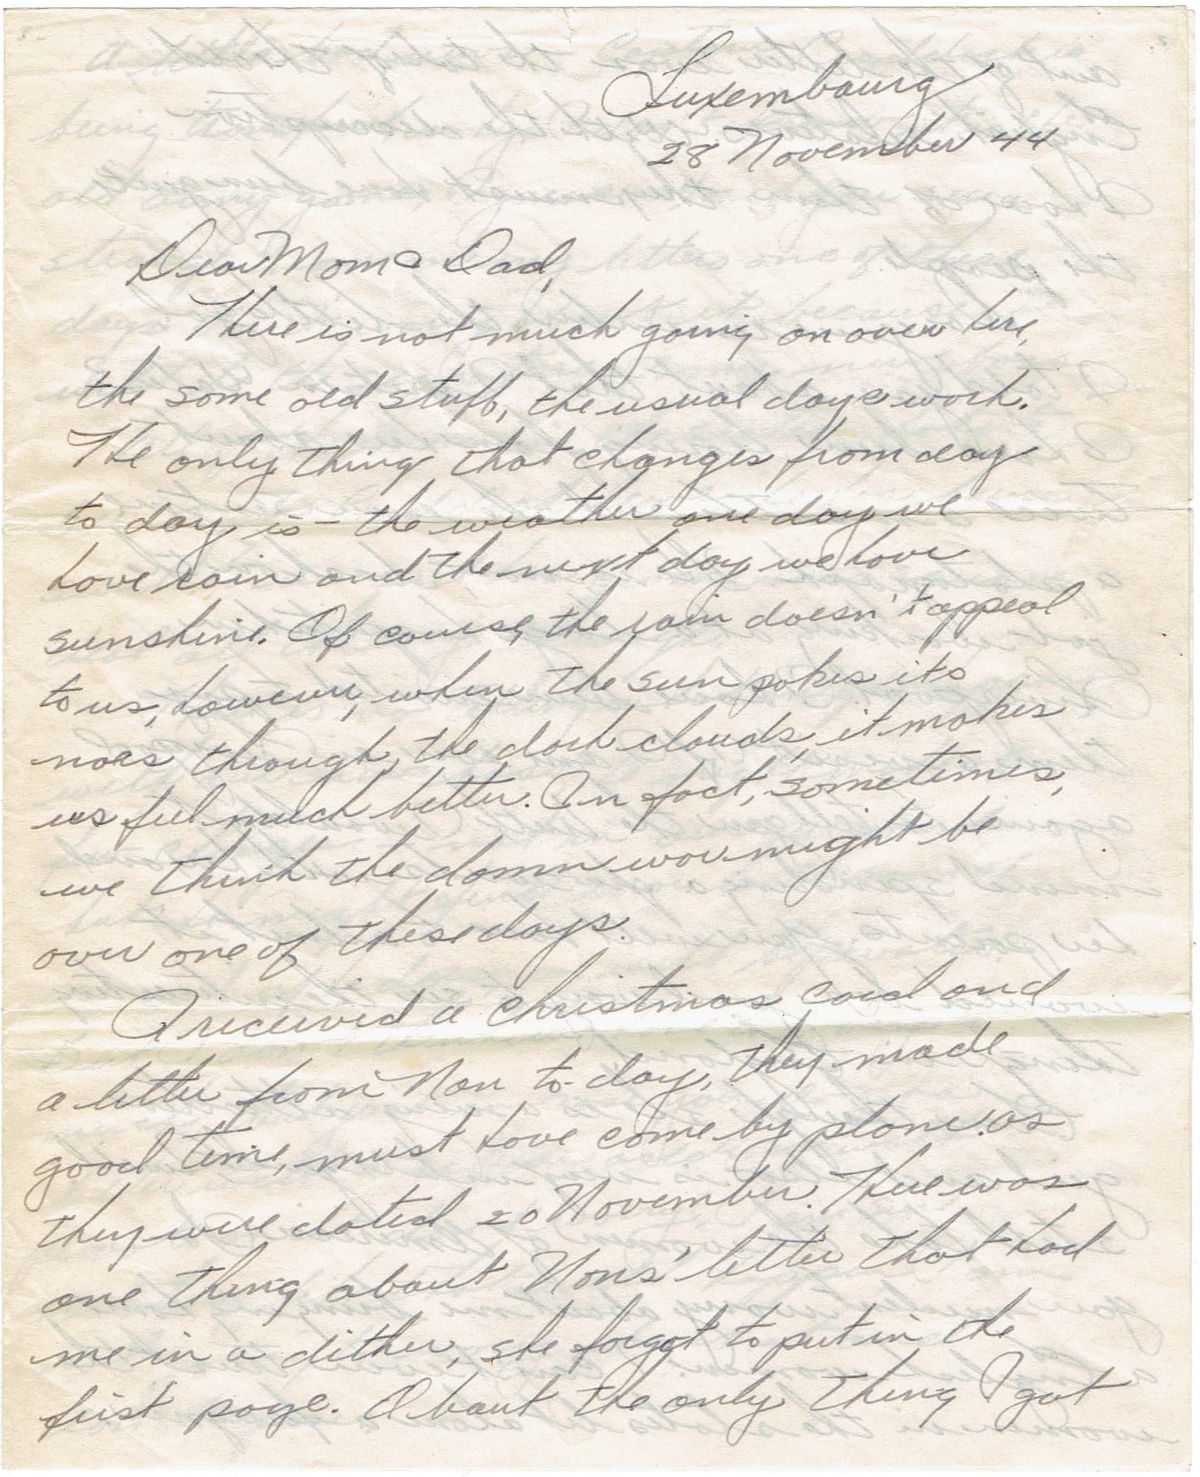 Luxembourg
28 November 44
Dear Mom & Dad,
There is not much going on over here,
the same old stuff, the usual days work.
The only thing that changes from day
to day, is - the weather one day we
have rain and the next day we have
sunshine. Of course, the rain doesn't appeal
to us, however, when the sun pokes its
noes through, the dark clouds, it makes
us feel much better. In fact, sometimes,
we think the damn war might be
over one of these days.
I received a christmas card and
a letter from Nan to-day, they made
good time, must have come by plane. as
they were dated 20 November. There was
one thing about Nans' letter that had
me in a dither, she forgot to put in the
first page. About the only thing I got